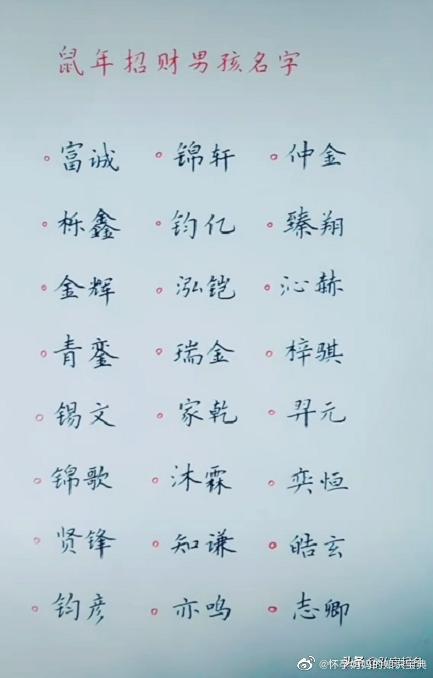 鼠年招财男孩名字
富诚 锦轩 仲金
栎鑫 钧亿 臻翔
金辉 泓铠 沁赫
青銮 瑞金 梓骐
锡文 家乾 羿元
锦歌 沐霖 奕恒
贤锋 知谦 皓玄
钧彦 亦鸣 志卿